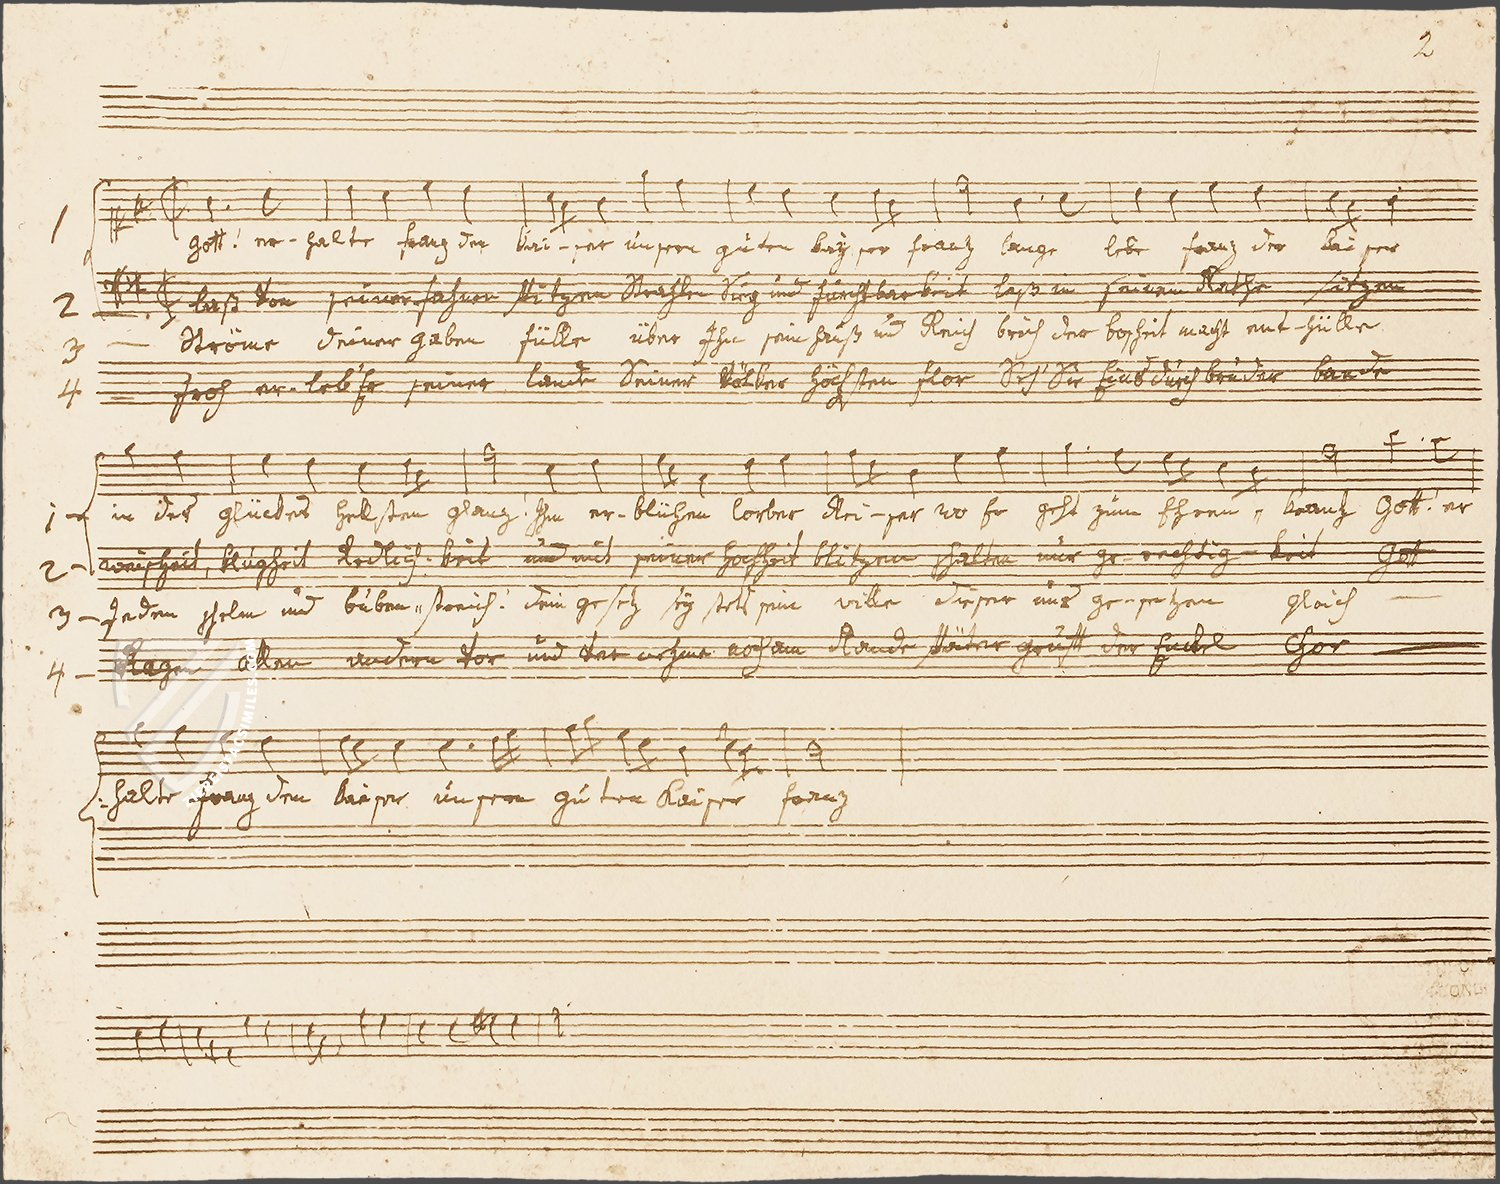 2
1 Gott! er-halte Franz den Kai-ser unsern guten Kayser Franz lange lebe Franz der Kaiser
2 laß von seiner Fahnen Spitzen Strahlen Sieg und Furchtbarkeit laß in seinem Rathe sitzen
3 Ströme deiner gaben fülle über Ihn sein Hauß und Reich brich der bosheit macht ent-hülle
4 Froh er-leb' Er seiner lande Seiner Völker Höchsten flor Seh' Sie Eins durch brüder bande
1 in des glückes Hellsten glanz! Ihm er-blühen lorber Rei-ser wo Er geht zum Ehren-kranz Gott! er
2 weisheit, Klugheit Redlich-keit und mit seiner Hochheit blitzen schalten nur ge-rechtig-keit Gott
3 Jedem schelm und buben-streich! dein gesetz sey stets sein wille dieser uns ge-setzen gleich
4 Ragen allen andern vor und vernehme noch am Rande später gruft der Enkel Chor
halte Franz den Kaiser unsern guten Kaiser Franz